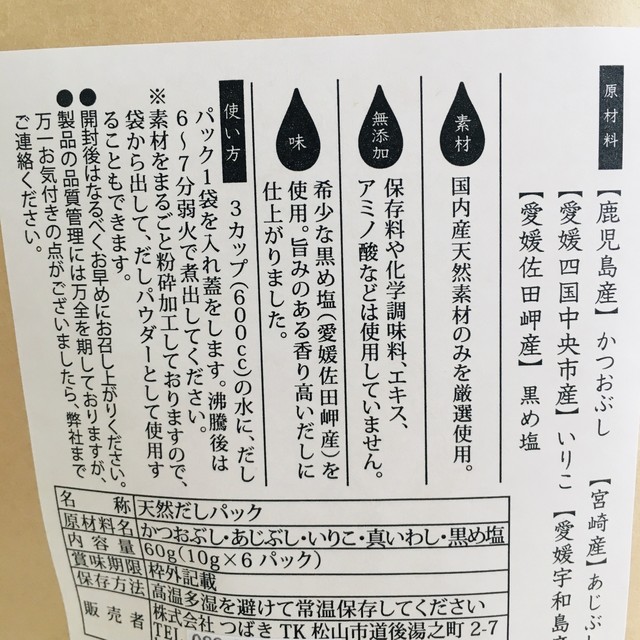 原材料
【鹿児島産】かつおぶし
【宮崎産】あじぶ
【愛媛四国中央市産】いりこ
【愛媛宇和島
【愛媛佐田岬産】黒め塩
素材
国内産天然素材のみを厳選使用。
無添加
保存料や化学調味料、エキス、
アミノ酸などは使用していません。
味
希少な黒め塩(愛媛佐田岬産)を
使用。旨みのある香り高いだしに
仕上がりました。
使い方
3カップ(600cc)の水に、だし
パック1袋を入れ蓋をします。沸騰後は
6～7分弱火で煮出してください。
※素材をまるごと粉砕加工しておりますので、
袋から出して、だしパウダーとして使用す
ることもできます。
●開封後はなるべくお早めにお召し上がりください。
●製品の品質管理には万全を期しておりますが、
万一お気付きの点がございましたら、弊社まで
ご連絡ください。
名称 天然だしパック
原材料名 かつおぶし・あじぶし・いりこ・真いわし・黒め塩
内容量 60g(10g×6パック)
賞味期限 枠外記載
保存方法 高温多湿を避けて常温保存してください
販売者 株式会社 つばき TK 松山市道後湯之町2-7
TEL